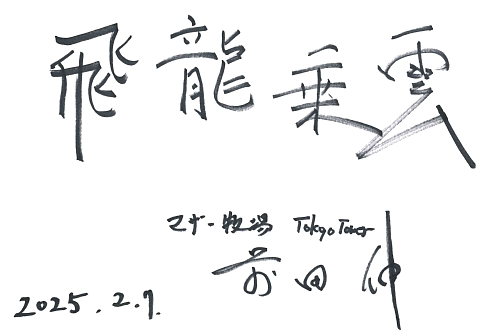 飛龍乗雲
マザー牧場 Tokyo Tower
前田伸
2025.2.7.